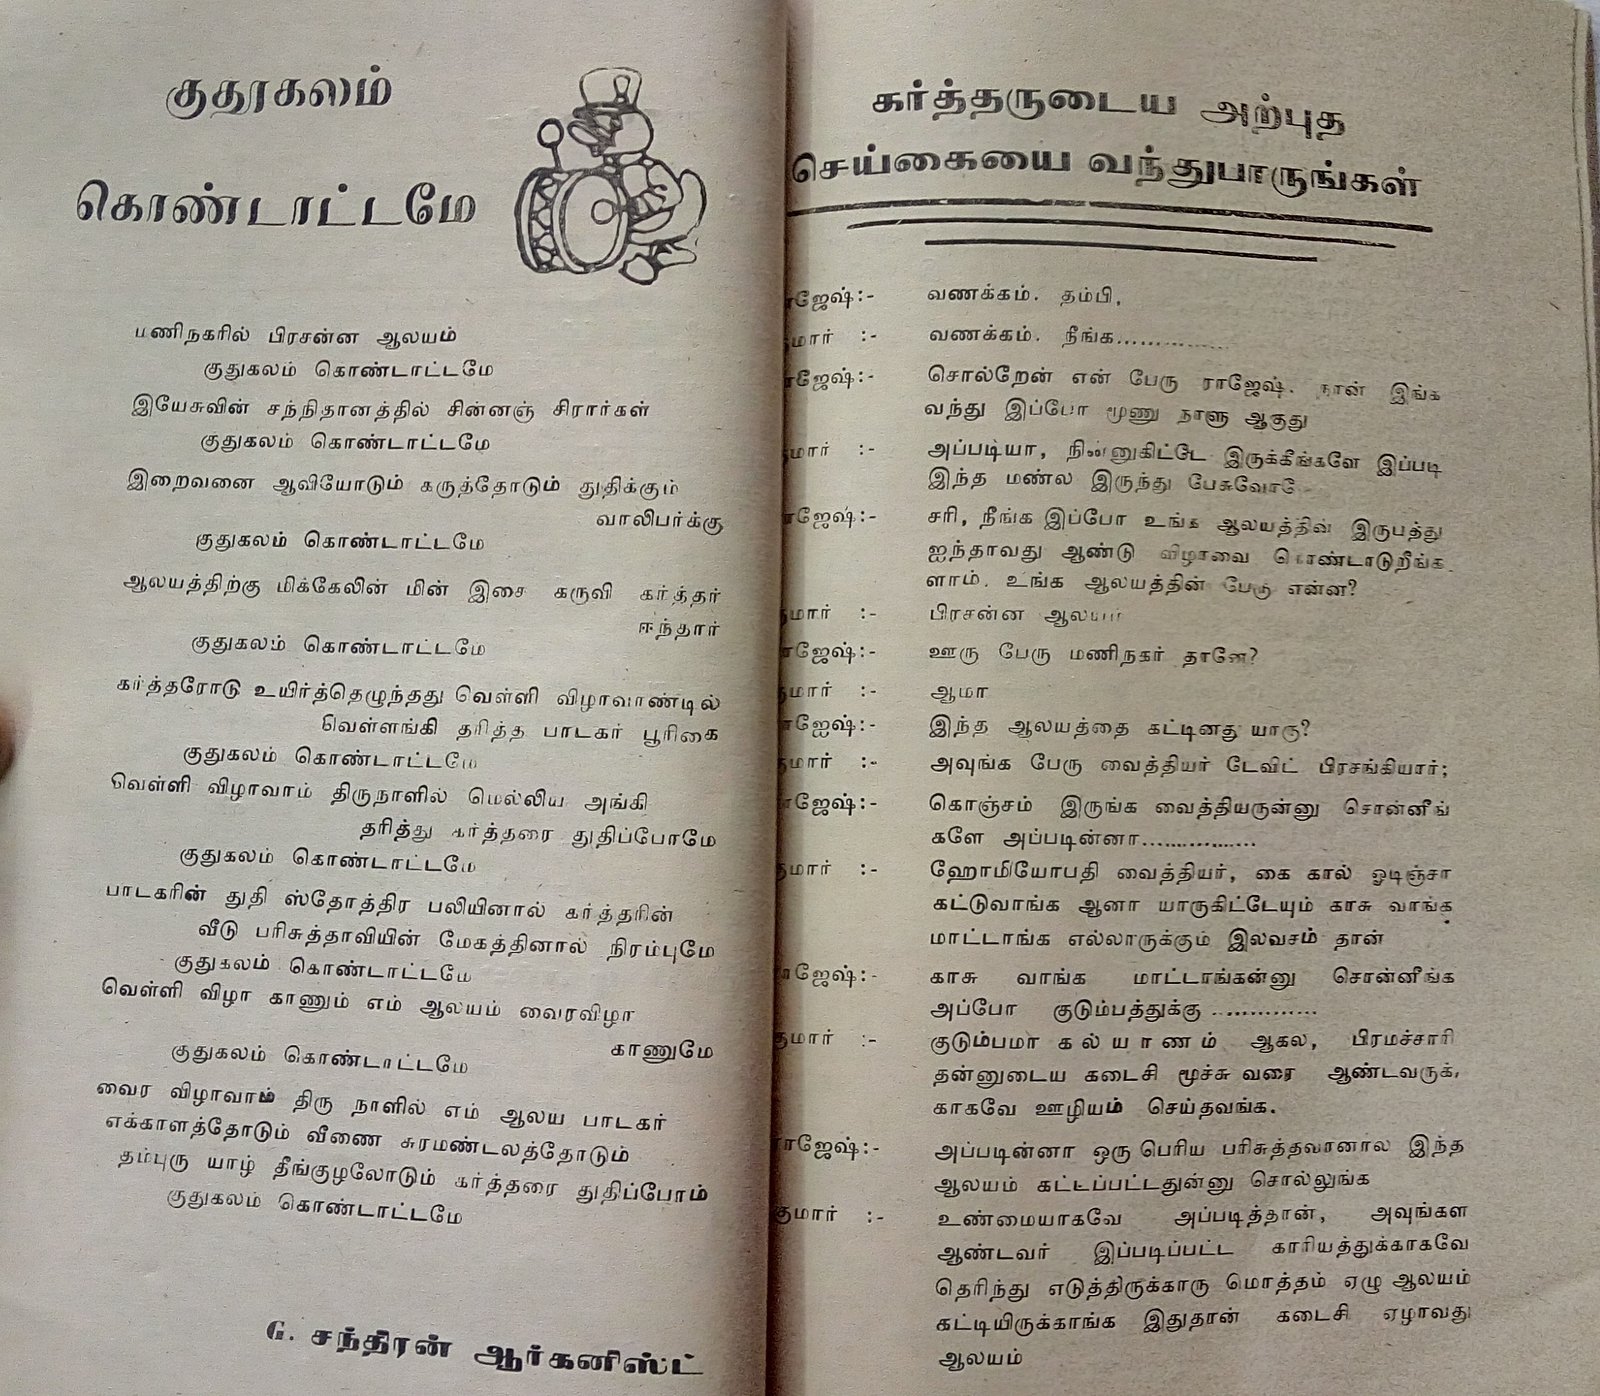 குதூகலம்
கொண்டாட்டமே
மணிநகரில் பிரசன்ன ஆலயம்
குதுகலம் கொண்டாட்டமே
இயேசுவின் சந்நிதானத்தில் சின்னஞ் சிரார்கள்
குதுகலம் கொண்டாட்டமே
இறைவனை ஆவியோடும் கருத்தோடும் துதிக்கும்
வாலிபர்க்கு
குதுகலம் கொண்டாட்டமே
ஆலயத்திற்கு மிக்கேலின் மின் இசை கருவி கர்த்தர்
ஈந்தார்
குதுகலம் கொண்டாட்டமே
கர்த்தரோடு உயிர்த்தெழுந்தது வெள்ளி விழாவாண்டில்
வெள்ளங்கி தரித்த பாடகர் பூரிகை
குதுகலம் கொண்டாட்டமே
வெள்ளி விழாவாம் திருநாளில் மெல்லிய அங்கி
தரித்து கர்த்தரை துதிப்போமே
குதுகலம் கொண்டாட்டமே
பாடகரின் துதி ஸ்தோத்திர பலியினால் கர்த்தரின்
வீடு பரிசுத்தாவியின் மேகத்தினால் நிரம்புமே
குதுகலம் கொண்டாட்டமே
வெள்ளி விழா காணும் எம் ஆலயம் வைரவிழா
காணுமே
குதுகலம் கொண்டாட்டமே
வைர விழாவாம் திரு நாளில் எம் ஆலய பாடகர்
எக்காளத்தோடும் வீணை சுரமண்டலத்தோடும்
தம்புரு யாழ் தீங்குழலோடும் கர்த்தரை துதிப்போம்
குதுகலம் கொண்டாட்டமே
G. சந்திரன் ஆர்கனிஸ்ட்
கர்த்தருடைய அற்புத
செய்கையை வந்துபாருங்கள்
ாஜேஷ்:- வணக்கம். தம்பி,
மார் :- வணக்கம். நீங்க...............
ாஜேஷ்:- சொல்றேன் என் பேரு ராஜேஷ். நான் இங்க
வந்து இப்போ மூணு நாளு ஆகுது
மார் :- அப்படியா, நின்னுகிட்டே இருக்கீங்களே இப்படி
இந்த மண்ல இருந்து பேசுவோமே
ாஜேஷ்:- சரி, நீங்க இப்போ உங்க ஆலயத்தின் இருபத்து
ஐந்தாவது ஆண்டு விழாவை கொண்டாடுறீங்க
ளாம். உங்க ஆலயத்தின் பேரு என்ன?
மார் :- பிரசன்ன ஆலயம்
ாஜேஷ்:- ஊரு பேரு மணிநகர் தானே?
குமார் :- ஆமா
ாஜேஷ்:- இந்த ஆலயத்தை கட்டினது யாரு?
குமார் :- அவுங்க பேரு வைத்தியர் டேவிட் பிரசங்கியார்;
ாஜேஷ்:- கொஞ்சம் இருங்க வைத்தியருன்னு சொன்னீங்
களே அப்படின்னா...............
குமார் :- ஹோமியோபதி வைத்தியர், கை கால் ஓடிஞ்சா
கட்டுவாங்க ஆனா யாருகிட்டேயும் காசு வாங்க
மாட்டாங்க எல்லாருக்கும் இலவசம் தான்
ாஜேஷ்:- காசு வாங்க மாட்டாங்கன்னு சொன்னீங்க
அப்போ குடும்பத்துக்கு .............
குமார் :- குடும்பமா கல்யாணம் ஆகல, பிரமச்சாரி
தன்னுடைய கடைசி மூச்சு வரை ஆண்டவருக்
காகவே ஊழியம் செய்தவங்க.
ராஜேஷ்:- அப்படின்னா ஒரு பெரிய பரிசுத்தவானால இந்த
ஆலயம் கட்டப்பட்டதுன்னு சொல்லுங்க
குமார் :- உண்மையாகவே அப்படித்தான், அவுங்கள
ஆண்டவர் இப்படிப்பட்ட காரியத்துக்காகவே
தெரிந்து எடுத்திருக்காரு மொத்தம் ஏழு ஆலயம்
கட்டியிருக்காங்க இதுதான் கடைசி ஏழாவது
ஆலயம்